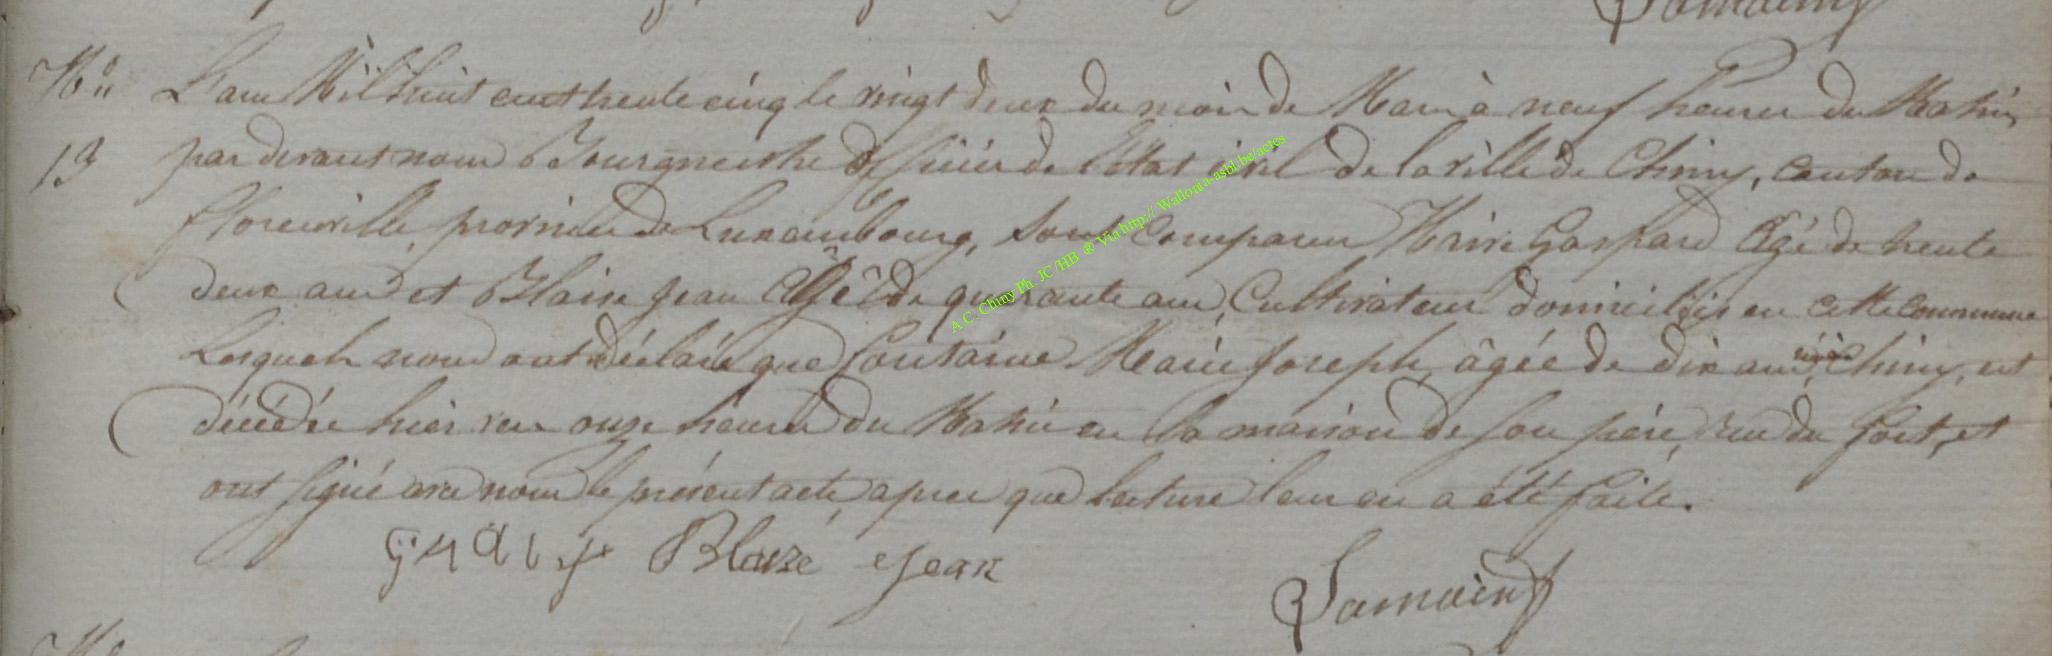 Samainf
No L'an Mil huit cent trente cinq le vingt deux du mois de Mars à neuf heures du Matin,
13 par devant nous Bourgmestre officier de l'état civil de la ville de Chiny, canton de
florenville, province de Luxembourg, sont comparu Gaspard Agé de trente
deux ans et Blaise Jean Agé de quarante ans, Cultivateur domiciliés en cette commune
Lesquels nous ont déclaré que fontaine Marie Joseph, âgée de dix ans, née à Chiny, est
décédée hier vers onze heures du Matin en la maison de son père, rue du fort, et
ont signé avec nous le présent acte, apres que lecture leur en a été faite.
Blaise Jean
Samainf
A.C. Chiny Ph. JC /HB @ Via http:// Wallonia-asbl.be/actes